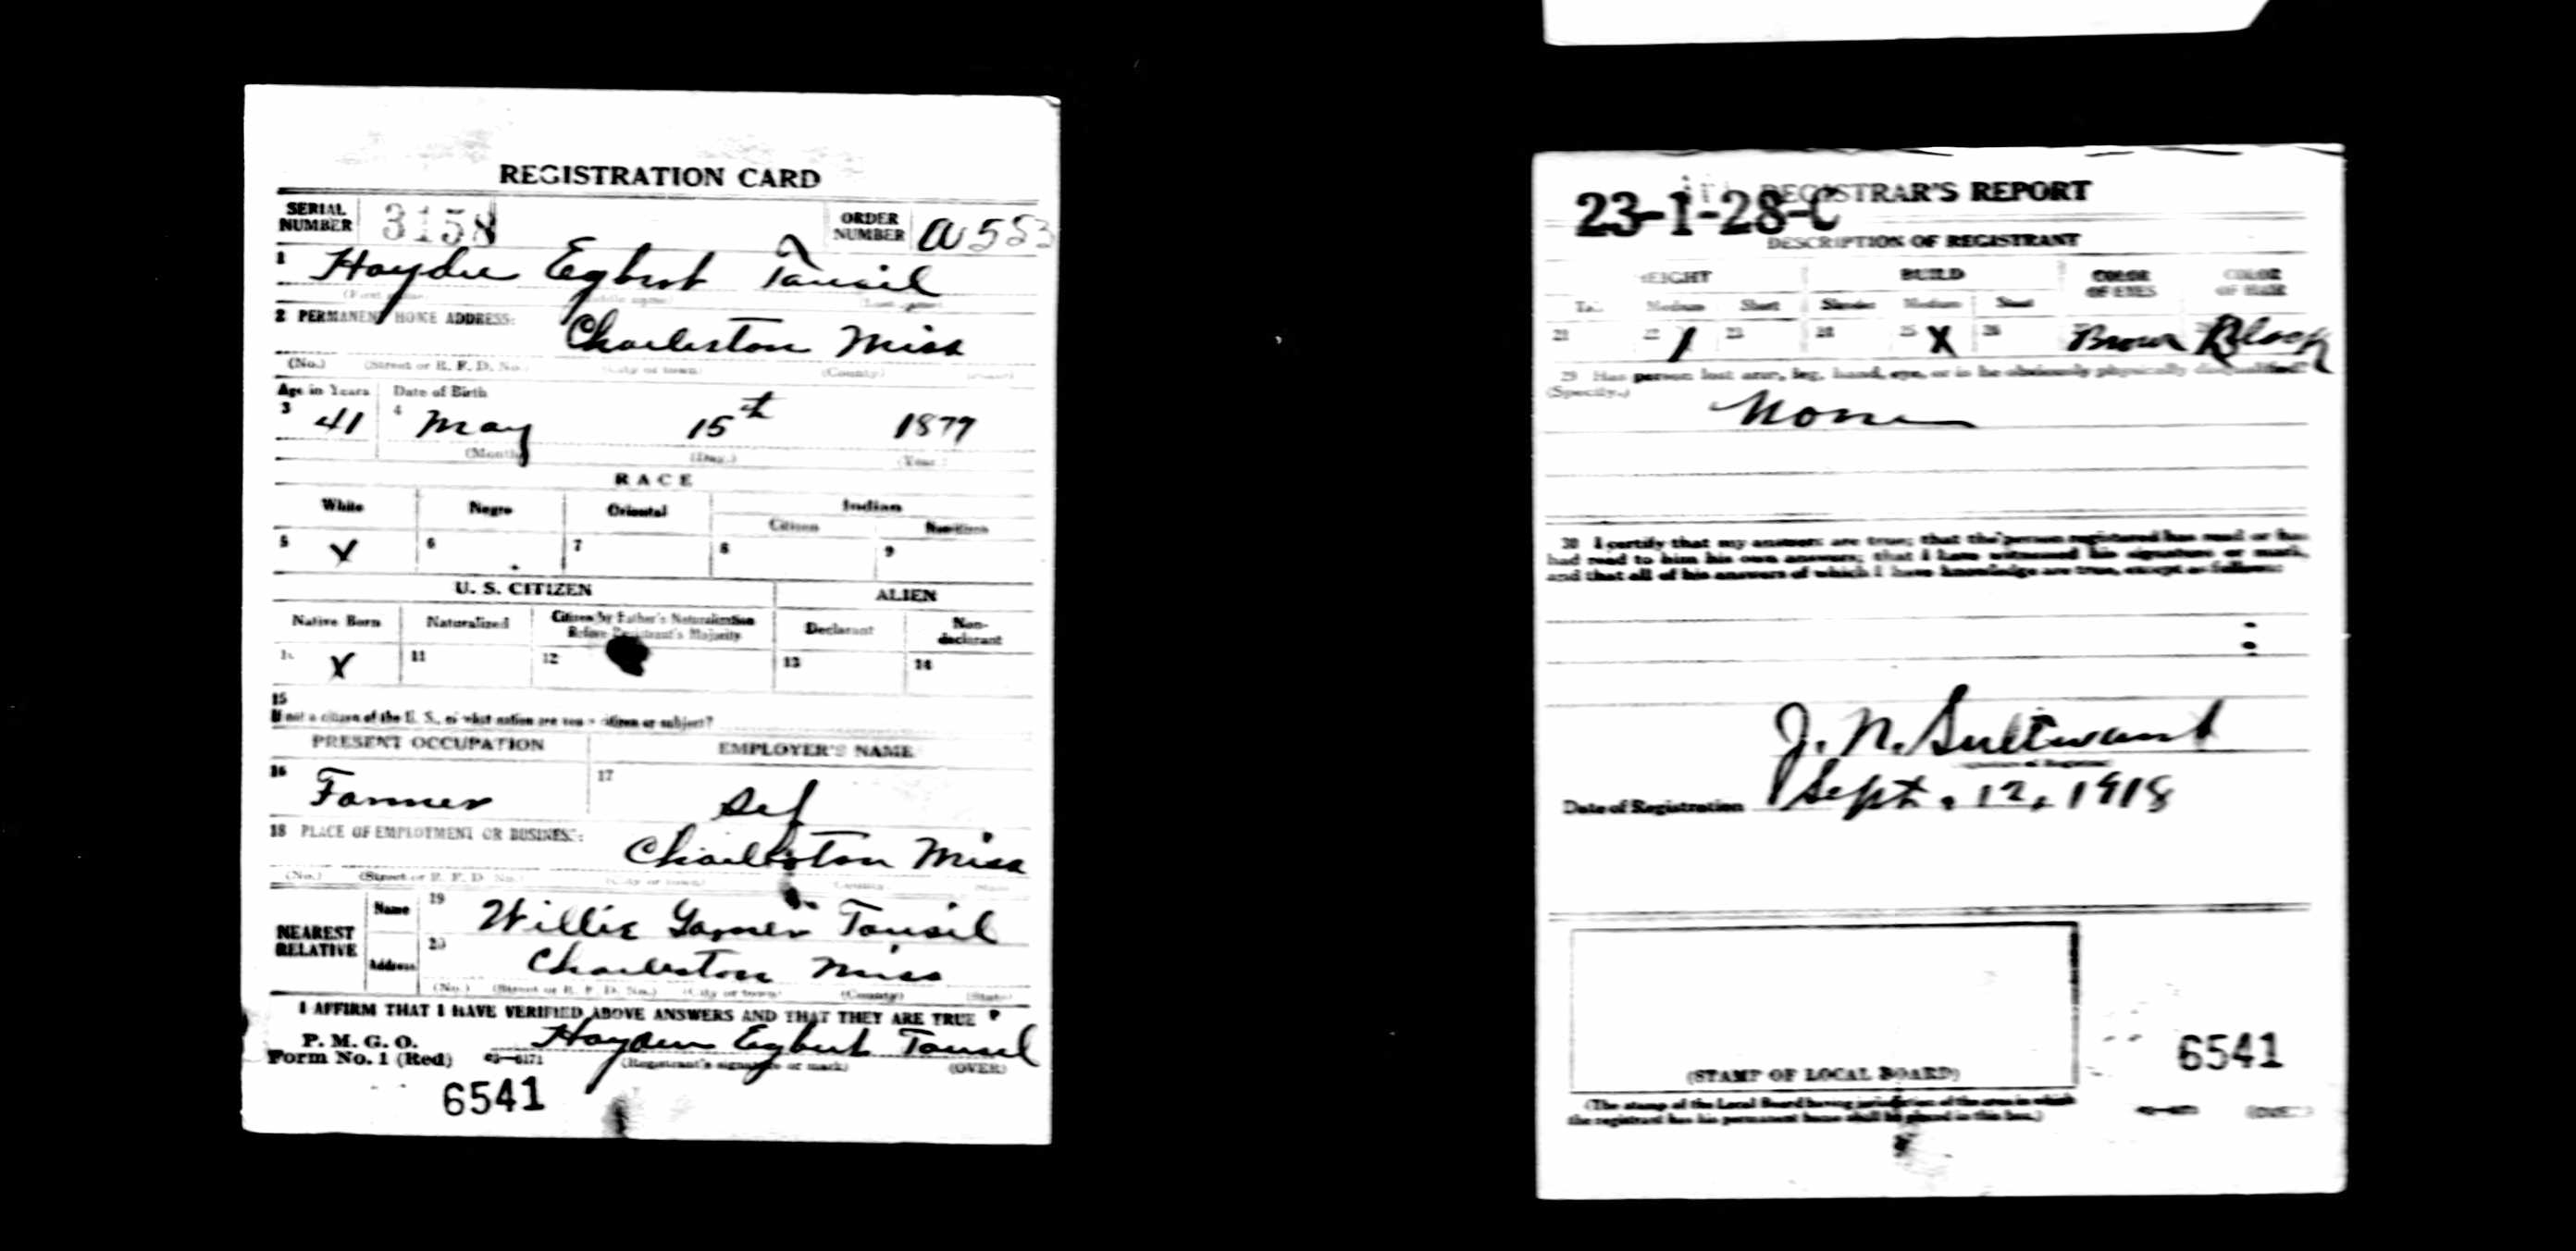 REGISTRATION CARD
SERIAL NUMBER 3158 ORDER NUMBER A553
1 Hayden Egbert Tansil
(First name) (Middle name) (Last name)
2 PERMANENT HOME ADDRESS:
Charleston Miss
(No.) (Street or R. F. D. No.) (City or town) (County) (State)
Age in Years Date of Birth
3 41 4 May 15th 1877
(Month) (Day.) (Year.)
RACE
White Negro Oriental Indian
Citizen Noncitizen
5 X 6 7 8 9
U. S. CITIZEN ALIEN
Native Born Naturalized Citizen by Father's Naturalization Before Registrant's Majority Declarant Non-declarant
10 X 11 12 13 14
15
If not a citizen of the U. S., of what nation are you a citizen or subject?
PRESENT OCCUPATION EMPLOYER'S NAME
16 Farmer 17 Self
18 PLACE OF EMPLOYMENT OR BUSINESS:
Charleston Miss
(No.) (Street or R. F. D. No.) (City or town) (County) (State)
NEAREST RELATIVE Name 19 Willie Garner Tansil
Address 20 Charleston Miss
(No.) (Street or R. F. D. No.) (City or town) (County) (State)
I AFFIRM THAT I HAVE VERIFIED ABOVE ANSWERS AND THAT THEY ARE TRUE
P. M. G. O.
Form No. 1 (Red) Hayden Egbert Tansil
(Registrant's signature or mark) (OVER)
6541
23-1-28-C REGISTRAR'S REPORT
DESCRIPTION OF REGISTRANT
HEIGHT BUILD COLOR OF EYES COLOR OF HAIR
Tall Medium Short Slender Medium Stout
21 22 / 23 24 25 X 26 Brown Black
29 Has person lost arm, leg, hand, eye, or is he obviously physically disqualified?
(Specify.)
None
30 I certify that my answers are true; that the person registered has read or has
had read to him his own answers; that I have witnessed his signature or mark,
and that all of his answers of which I have knowledge are true, except as follows:
J. N.
Date of Registration Sept. 12, 1918
(STAMP OF LOCAL BOARD)
(The stamp of the Local Board having jurisdiction of the area in which
the registrant has his permanent home shall be placed in this box.)
6541
(OVER)